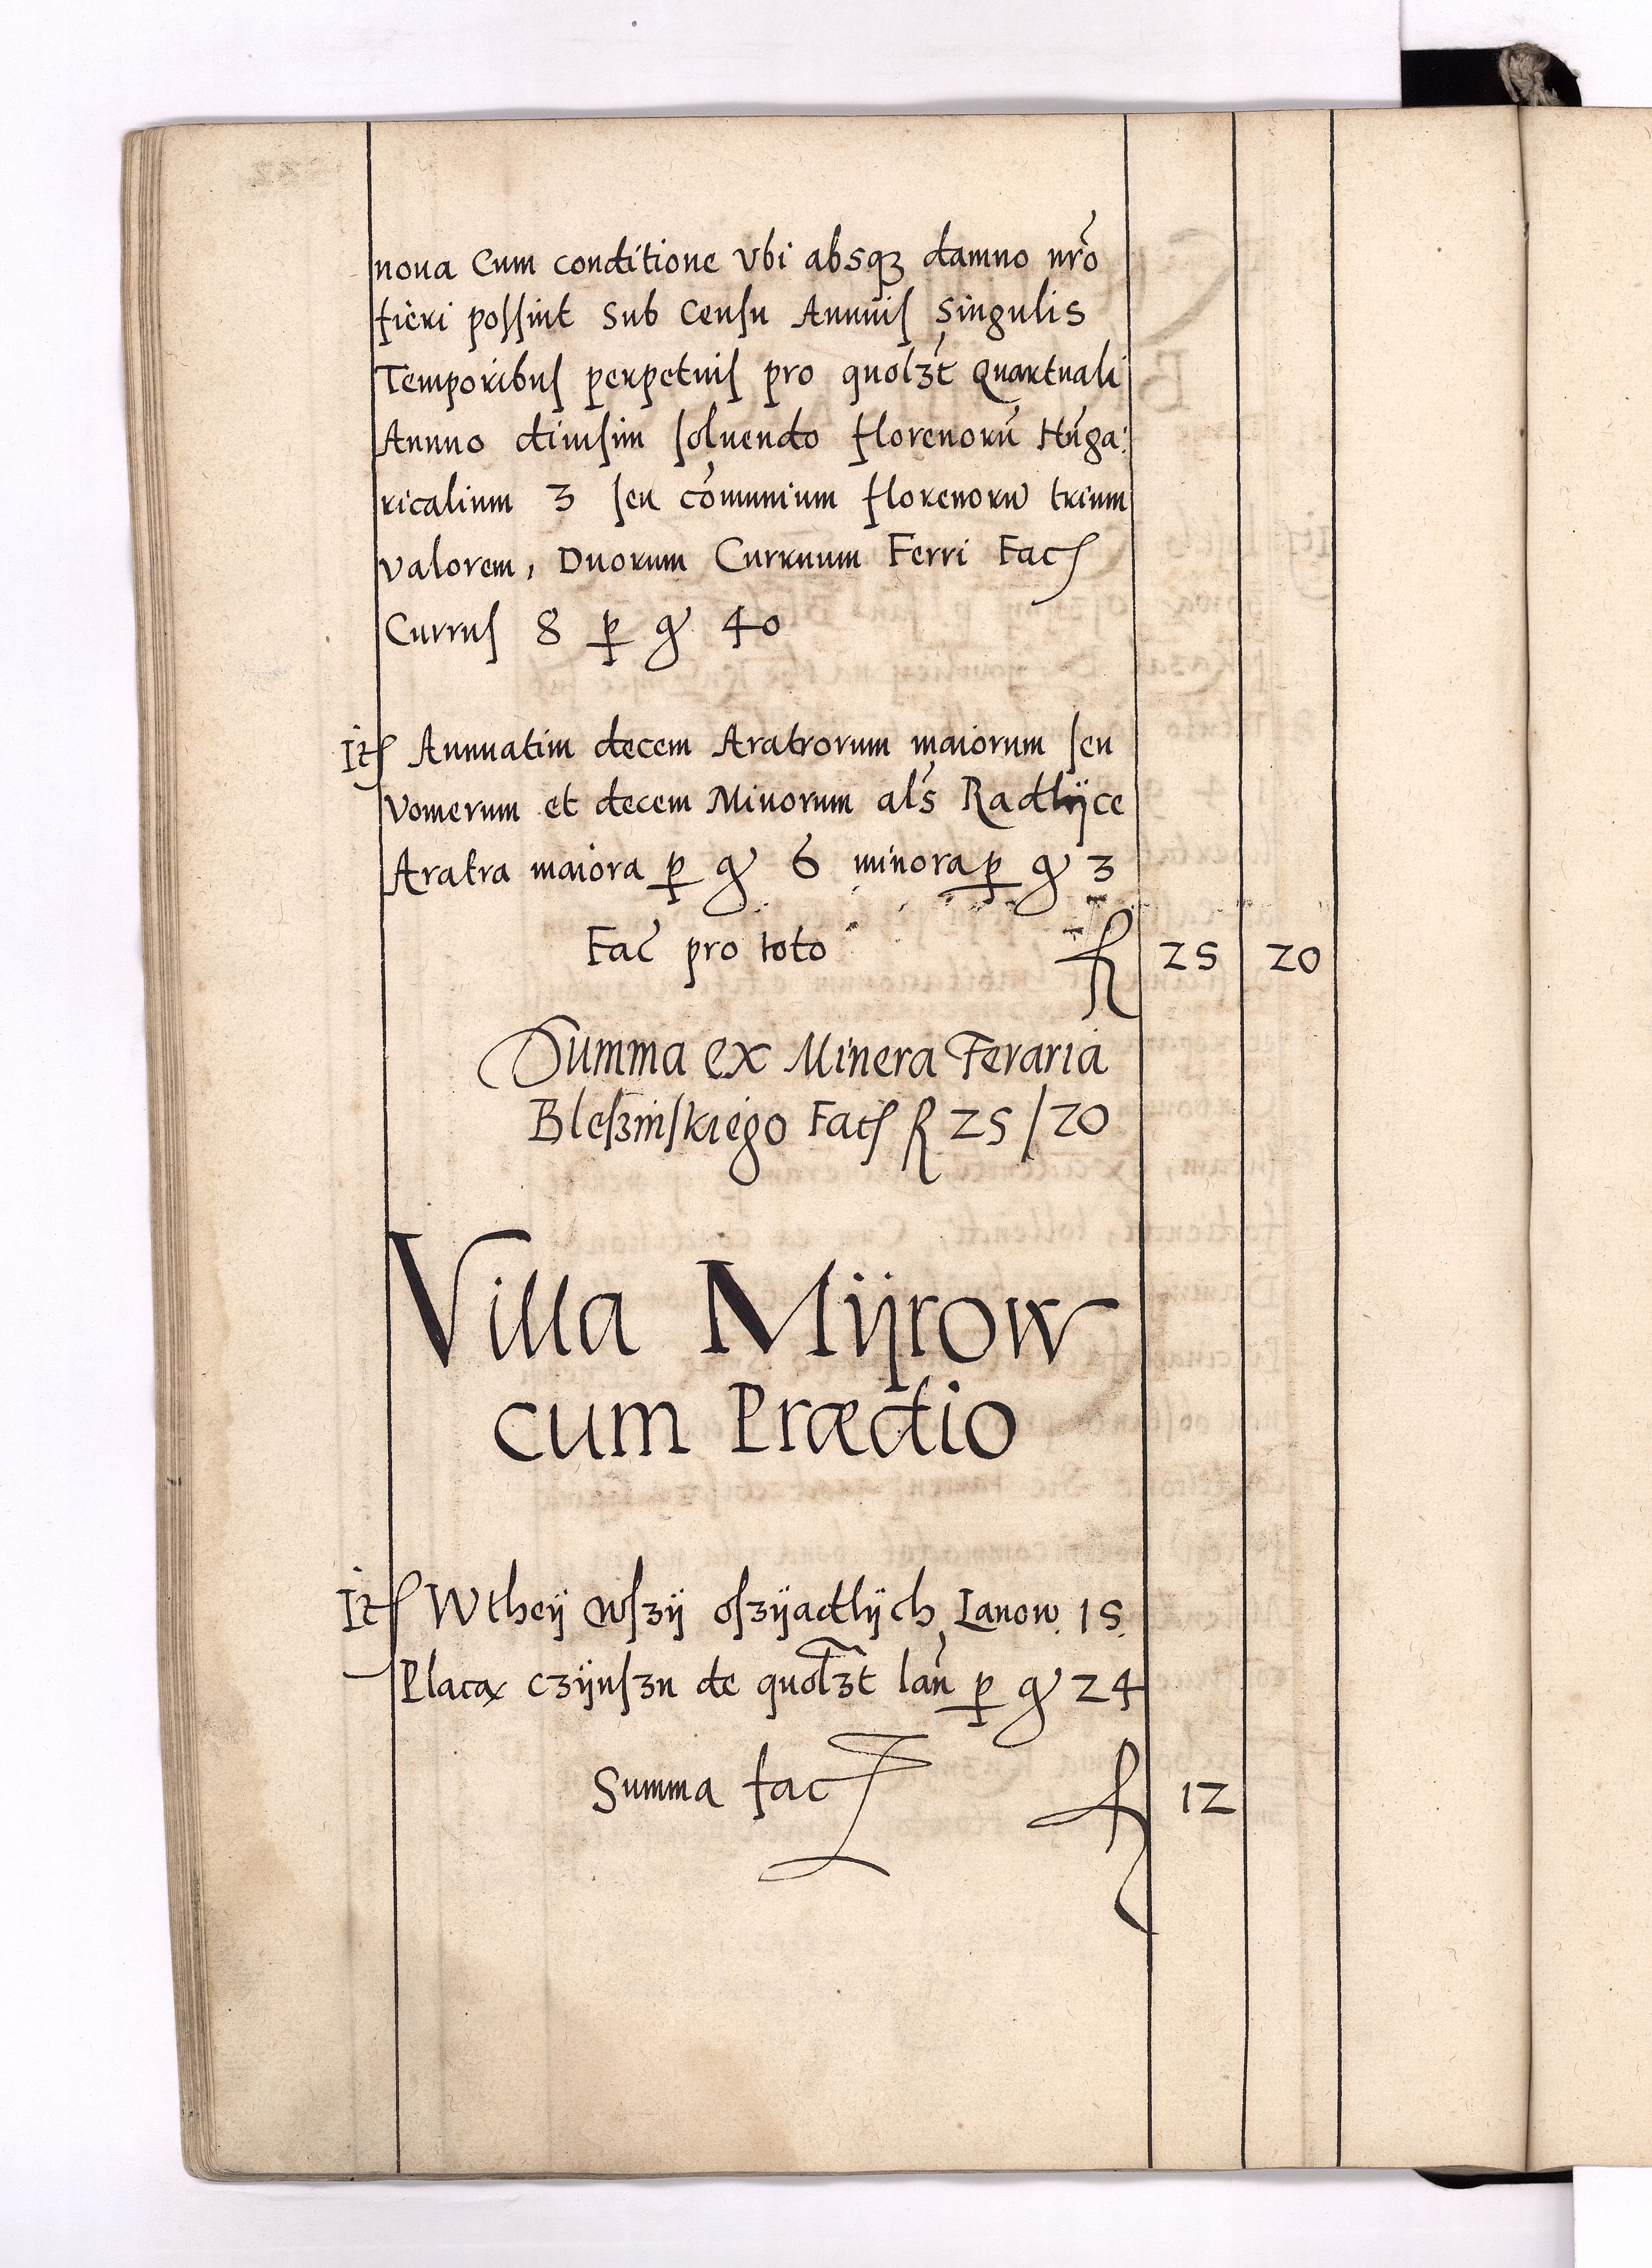 noua Cum conditione Vbi absqꝫ damno nrõ
fieri possint Sub Censu Annuis Singulis
Temporibus perpetuis pro quolꝫt Quartuali
Annuo diuisim soluendo florenorũ Hũga:
ricalium 3 seu cõmunium florenorũ trium
valorem, Duorum Curruum Ferri Fac
Currus 8 ꝑ gͬ 40
It Annuatim decem Aratrorum maiorum seu
Vomerum et decem Minorum als̃ Radlÿce
Aratra maiora ꝑ gͬ 6 minora ꝑ gͬ 3
Fac̃ pro toto fl 25 20
Summa ex Minera Feraria
Bleszinskiego Fac fl 25/20
Villa Mÿrow
cum Prædio
It Wtheÿ wszÿ oszÿadlÿch Lanow 15
Placą czÿnszu de quolꝫt lañ ꝑ gͬ 24
Summa fac fl 12